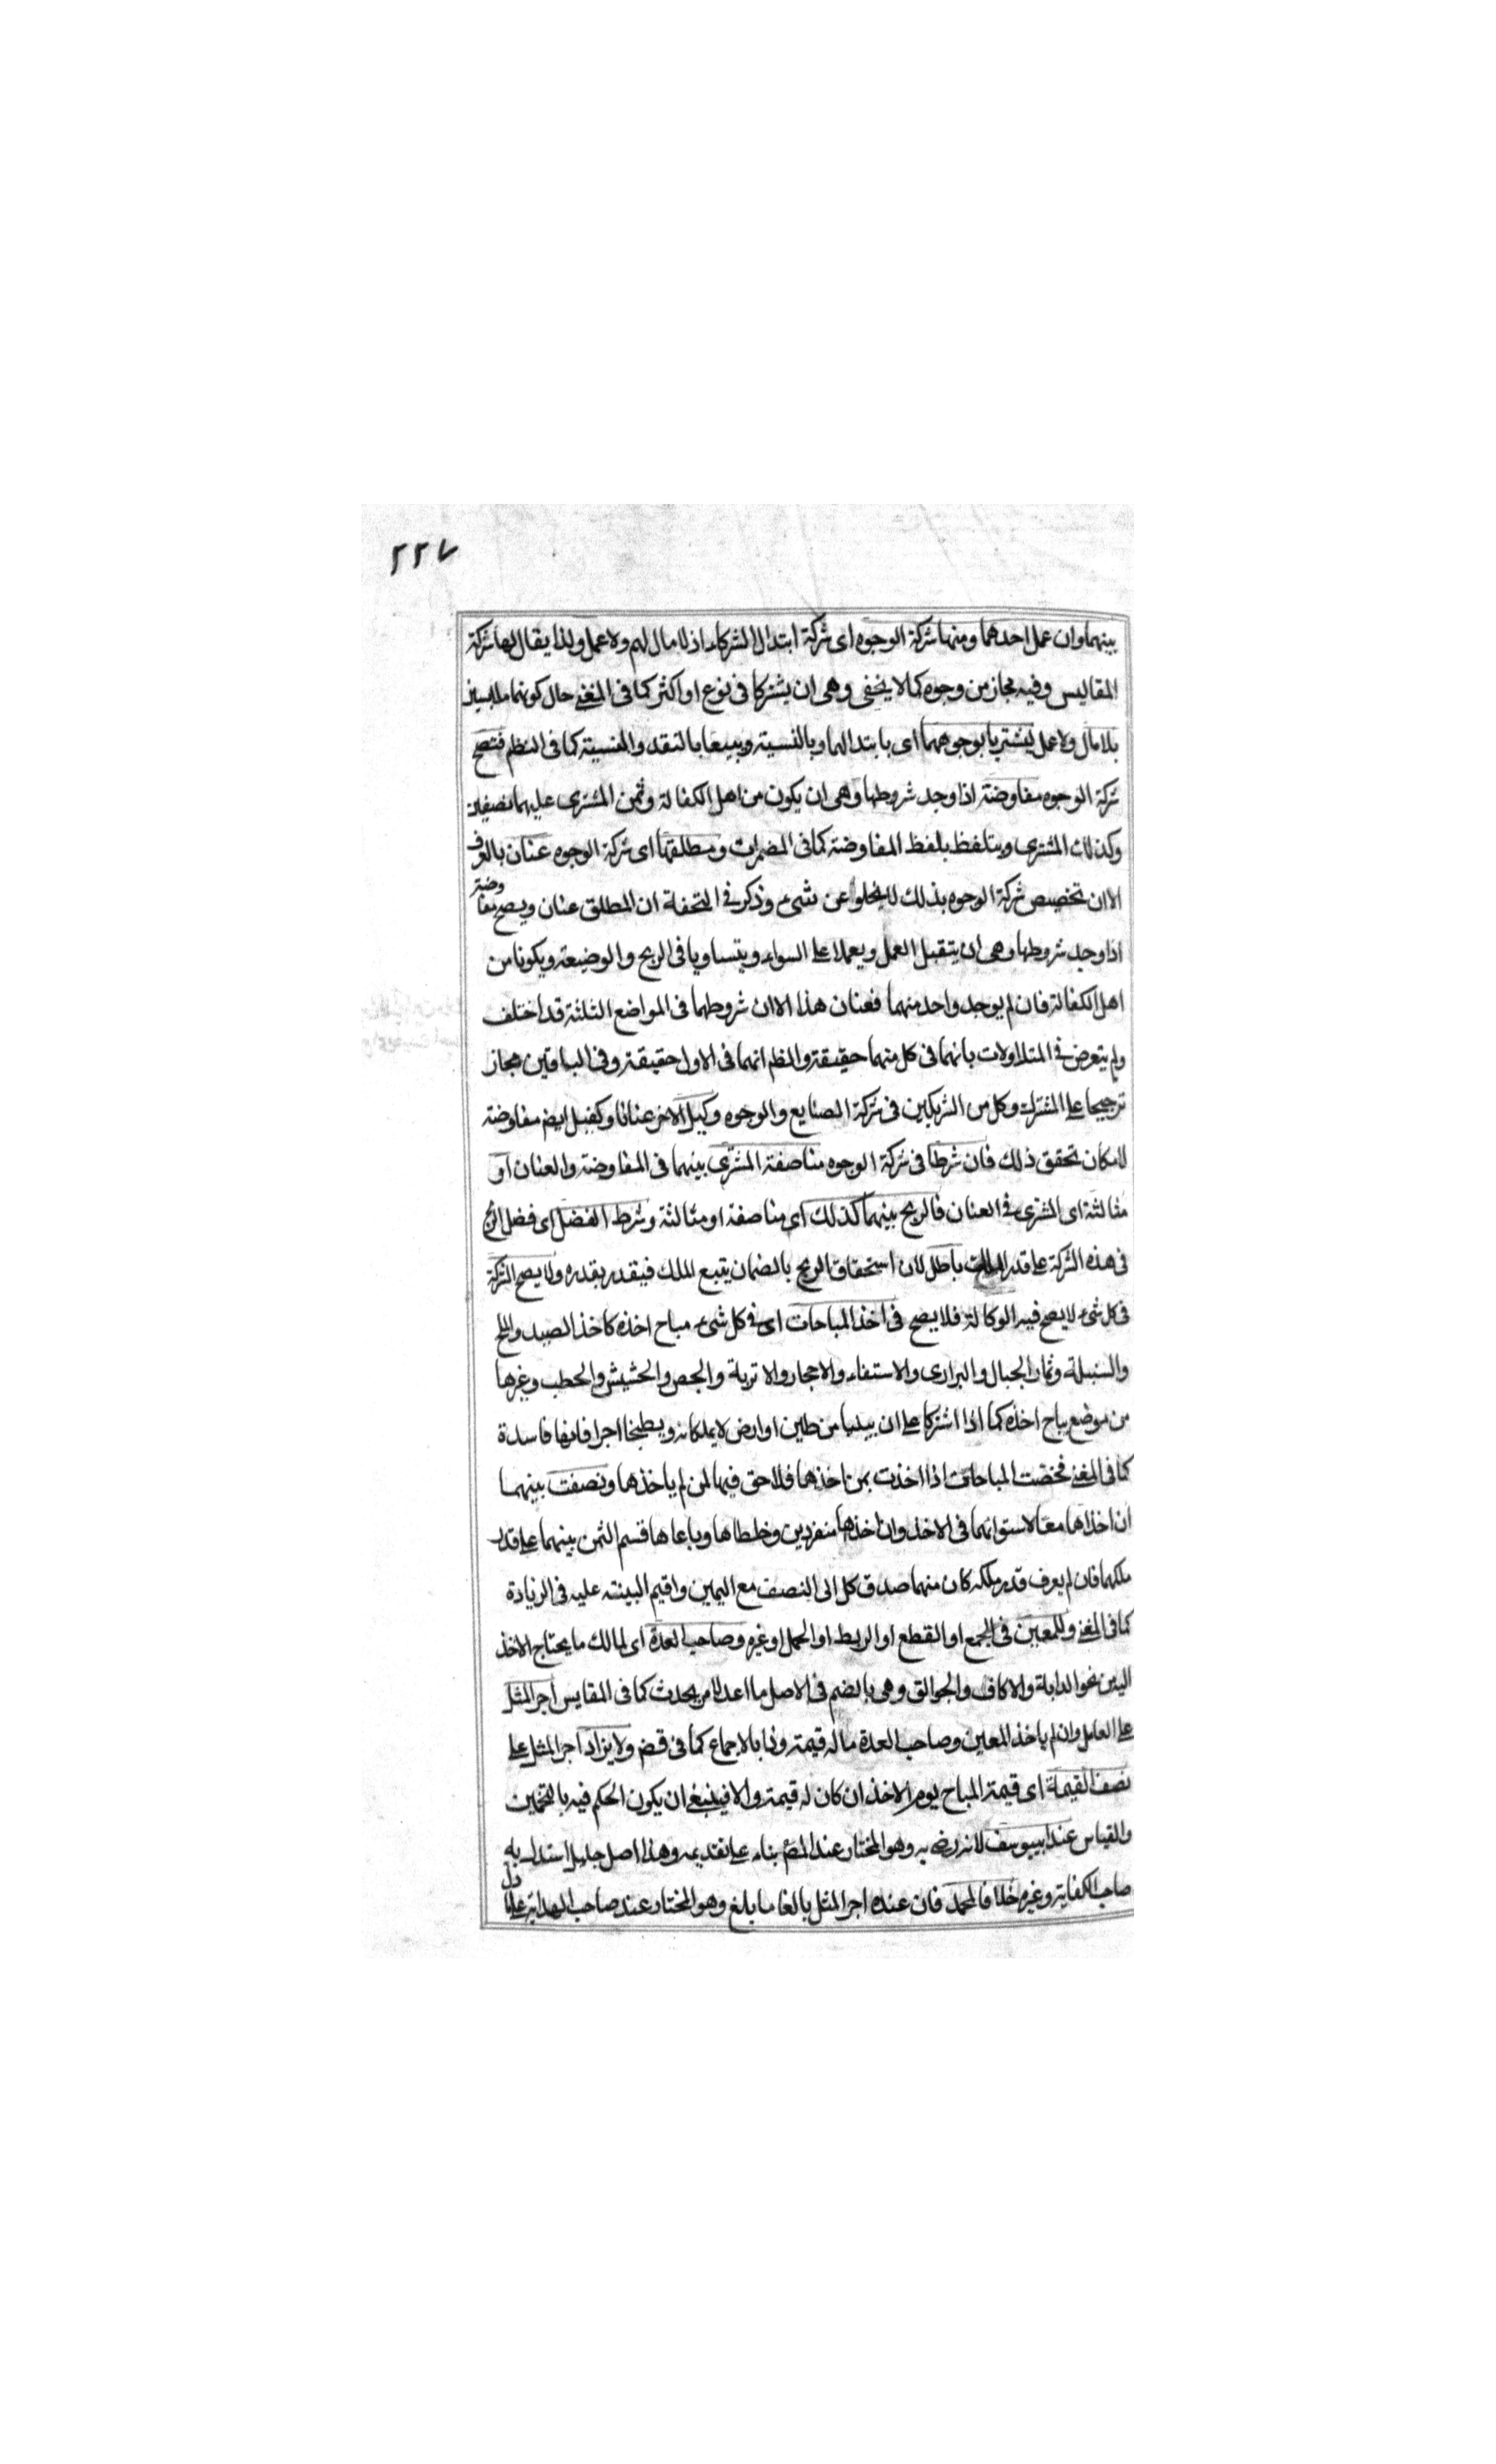 ٢٢٧
بينهما وان عمل احدهما ومنها شركة الوجوه اى شركة ابتدال الشركاء اذ لا مال لهم ولا عمل ولذا يقال لها شركة
المقاليس وفيه مجاز من وجوه كما لا يخفى وهى ان يشتركا فى نوع او اكثر كما فى المغنے حال كونهما ملابسين
بلا مال ولا عمل ليشتريا بوجوههما اى بابتدالهما وبالنسيئة ويبيعا بالنقد والنسيئة كما فى النظم فتصح
شركة الوجوه مفاوضة اذا وجد شروطها وهى ان يكون من اهل الكفالة وثمن المشترى عليهما نصفين
وكذلك المشترى ويتلفظ بلفظ المفاوضة كما فى المضمرات ومطلقها اى شركة الوجوه عنان بالعرف
الا ان تخصيص شركة الوجوه بذلك لا يخلوا عن شىء وذكر فے التحفة ان المطلق عنان ويصح مفاوضة
اذا وجد شروطها وهى ان يتقبل العمل ويعملا علے السواء ويتساويا فى الربح والوضيعة ويكونا من
اهل الكفالة فان لم يوجد واحد منهما فعنان هذا الا ان شروطهما فى المواضع الثلثة قد اختلف
ولم يتعرض فے المتداولات بانهما فى كل منهما حقيقة والنظم انهما فى الاول حقيقة وفى الباقين مجاز
ترجيحا علے المشترك وكل من الشريكين فى شركة الصنايع والوجوه وكيل الاخر عنانا وكفيل ايضم مفاوضة
لامكان تحقق ذلك فان شرطا فى شركة الوجوه مناصفة المشترى بينهما فى المفاوضة والعنان او
مثالثة اى المشترى فے العنان فالربح بينهما كذلك اى مناصفة او مثالثة وشرط الفضل اى فضل الربح
فى هذه الشركة علے قدر الملك باطل لان استحقاق الربح بالضمان يتبع الملك فيتقدر بقدره ولا يصح الشركة
فى كل شىء لا يصح فيه الوكالة فلا يصح فى اخذ المباحات اى فے كل شىء مباح اخذه كاخذ الصيد والملح
والسنبلة وثمار الجبال والبرارى والاستقاء والاحجار والاتربة والجص والحشيش والحطب وغيرها
من موضع يباح اخذه كما اذا اشتركا علے ان يبلبا من طين او ارض لا يملكانه ويطبخا اجرا فانها فاسدة
كما فى المغنے فخصت المباحات اذا اخذت بمن اخذهما فلا حق فيها لمن لم ياخذها ونصفت بينهما
ان اخذاها معا لاستوائهما فى الاخذ وان اخذها منفردين وخلطاها وباعاها قسم الثمن بينهما علے قدر
ملكهما فان لم يعرف قدر ملكه كان منهما صدق كل الى النصف مع اليمين واقيم البينة عليه فى الزيادة
كما فى المغنے وللمعين فى الجمع او القطع او الربط او الحمل او غيره وصاحب العدة اى لمالك ما يحتاج الاخذ
اليه من نحو الدابة والاكاف والجوالق وهى بالضم فى الاصل ما اعد لامر يحدث كما فى المقايس اجر المثل
علے العامل وان لم ياخذ المعين وصاحب العدة ماله قيمة وذا بالاجماع كما فى قض ولا يزاد اجر المثل علے
نصف القيمة اى قيمة المباح يوم الاخذ ان كان له قيمة والا فينبغے ان يكون الحكم فيه بالتخمين
والقياس عند ابييوسف لانه رضى به وهو المختار عند المصً بناء علے تقديمه وهذا اصل جليل استدل به
صاحب الكفاية وغيره خلافا لمحمد فان عنده اجر المثل بالغا ما بلغ وهو المختار عند صاحب الهداية علے ما دل